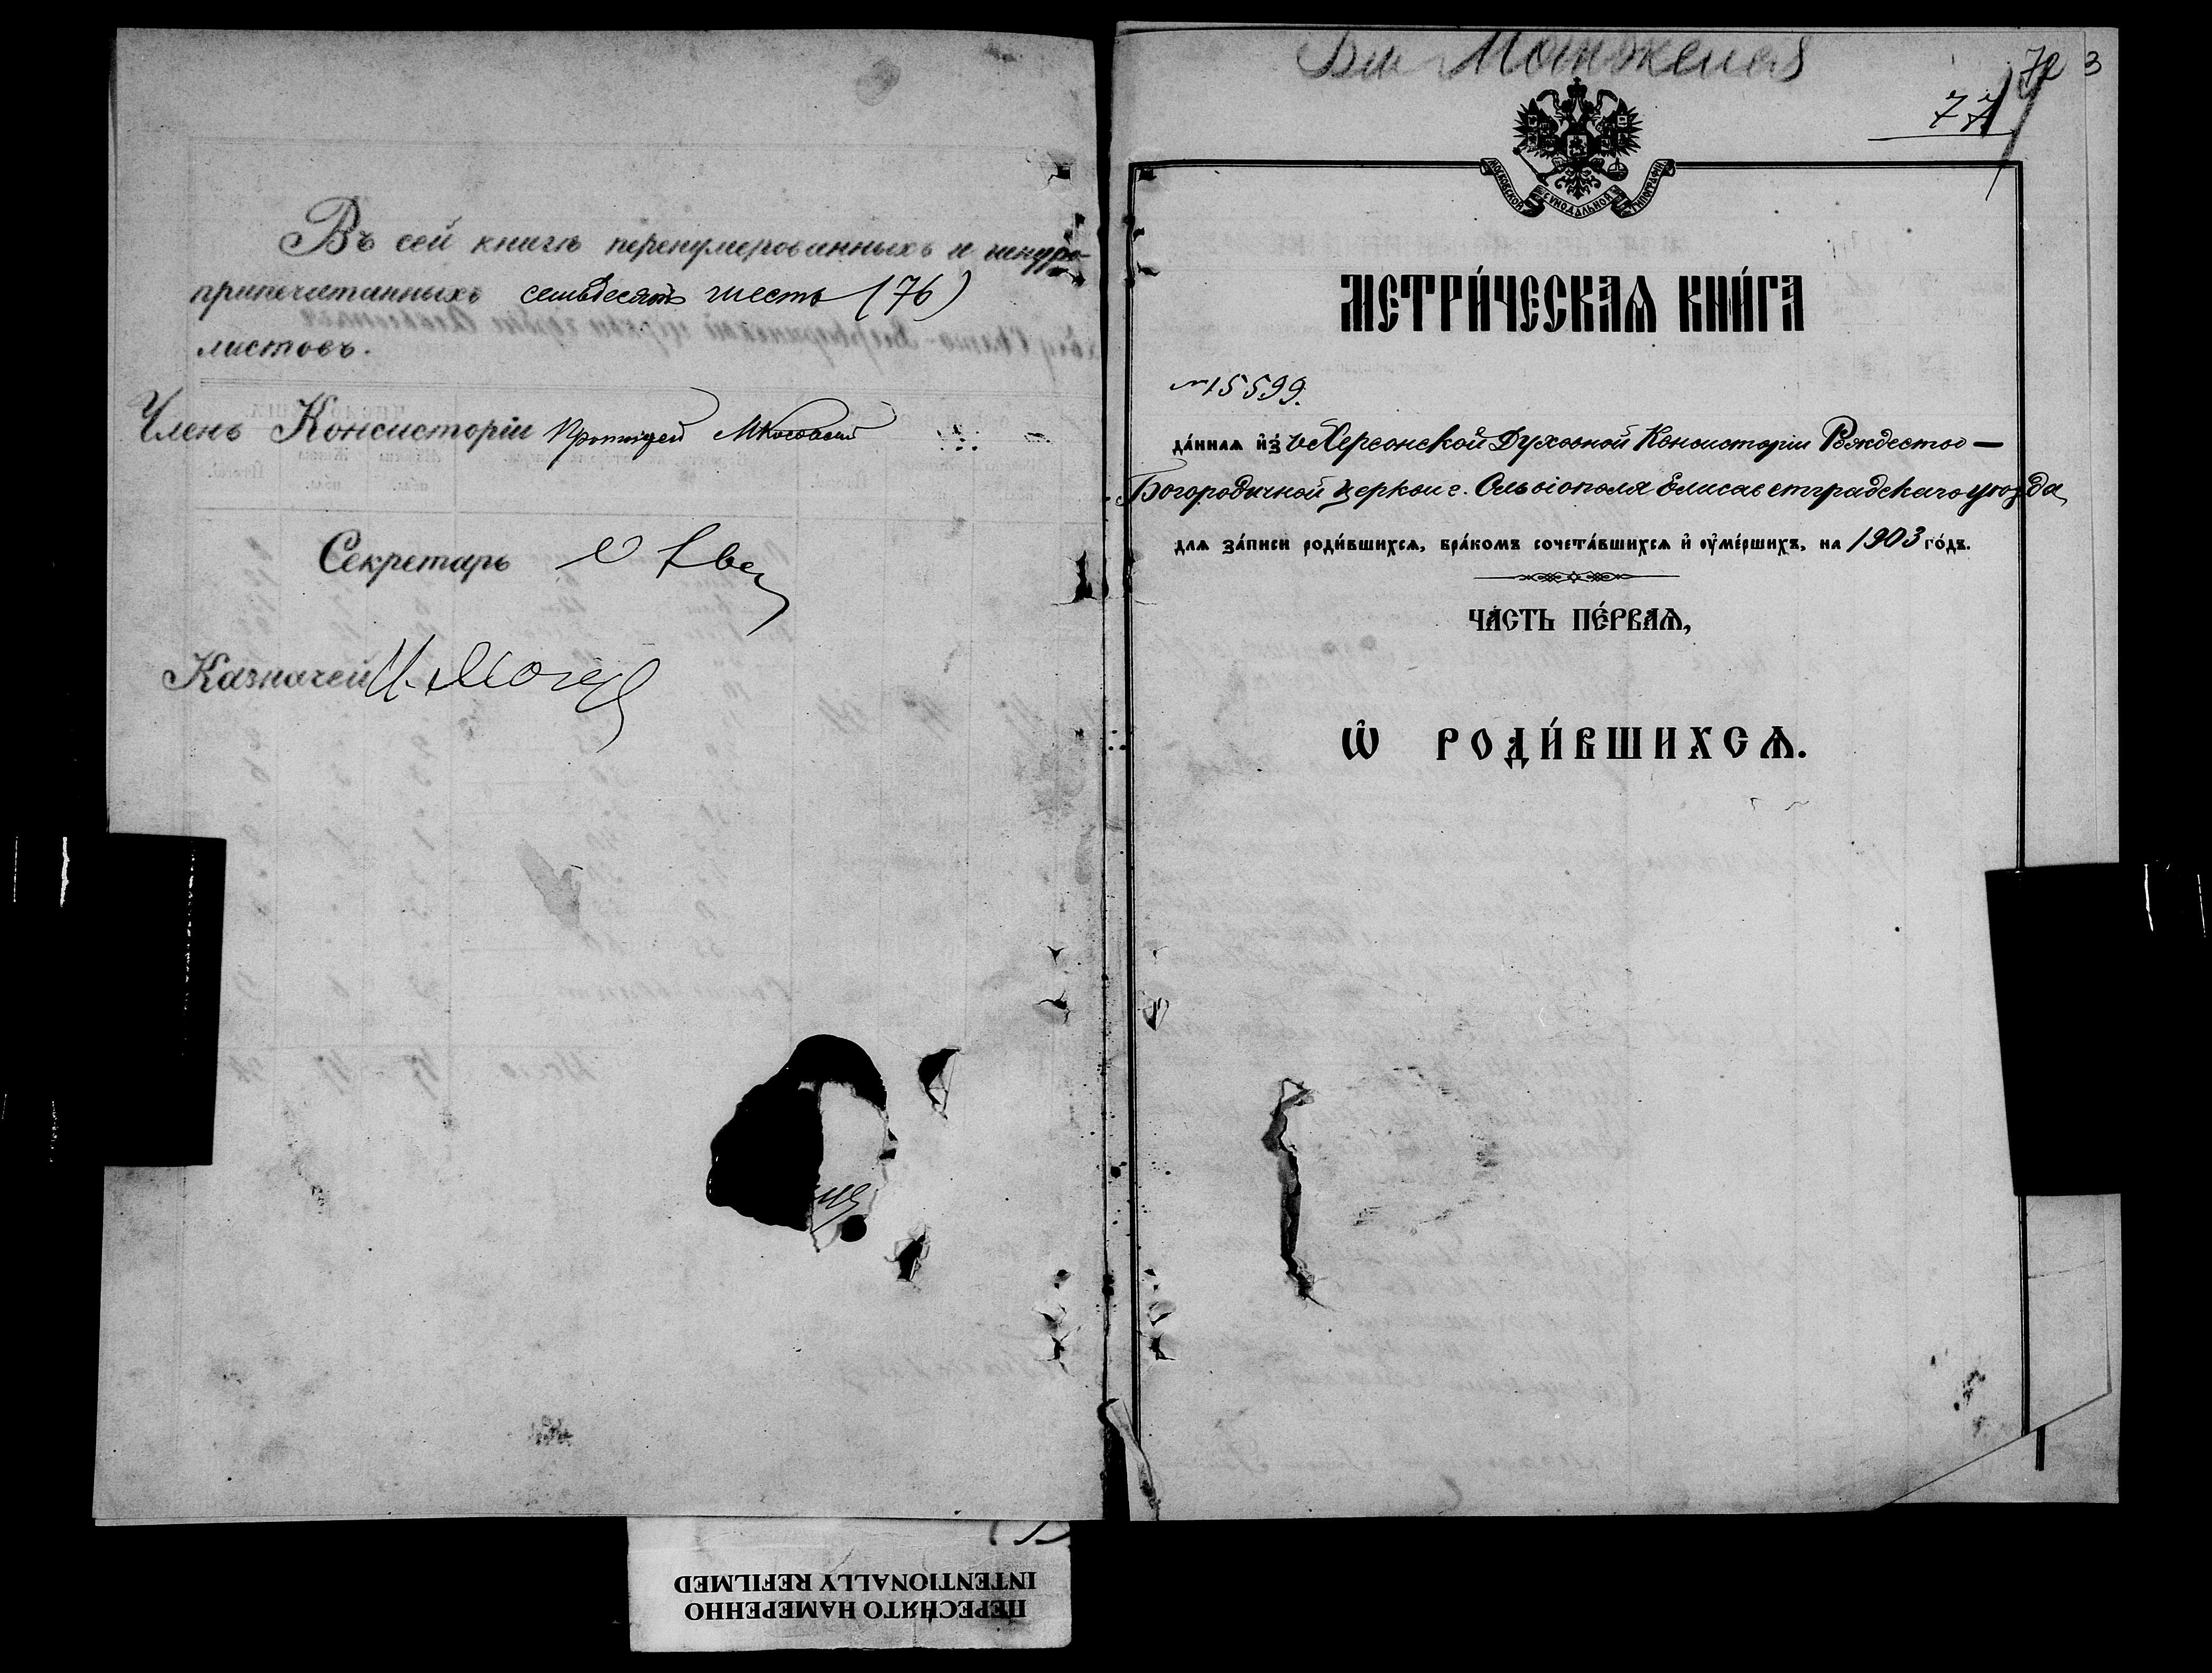 Въ сей книгѣ перенумерованныхъ и шнуро-
припечатанныхъ семьдесятъ шесть (76)
листовъ.
Членъ Консисторіи Протоіерей
Секретарь
Казначей
72 3
77
МОСКОВСКОЙ СѴНОДАЛЬНОЙ ТИПОГРАФІИ
МЕТРИ́ЧЕСКАѦ КНИ́ГА
№ 15599.
да́ннаѧ и҆з̾ Херсонской Духовной Консисторіи Рождество-
Богородичной церкви г. Ольвіополя Елисаветградскаго уѣзда
для за́писи роди́вшихсѧ, бра́комъ сочета́вшихсѧ и҆ ᲂу҆ме́ршихъ, на 1903 го́дъ.
ЧА́СТЬ ПЕ́РВАѦ,
Ѽ РОДИ́ВШИХСѦ.
ПЕРЕСНЯТО НАМЕРЕННО
INTENTIONALLY REFILMED